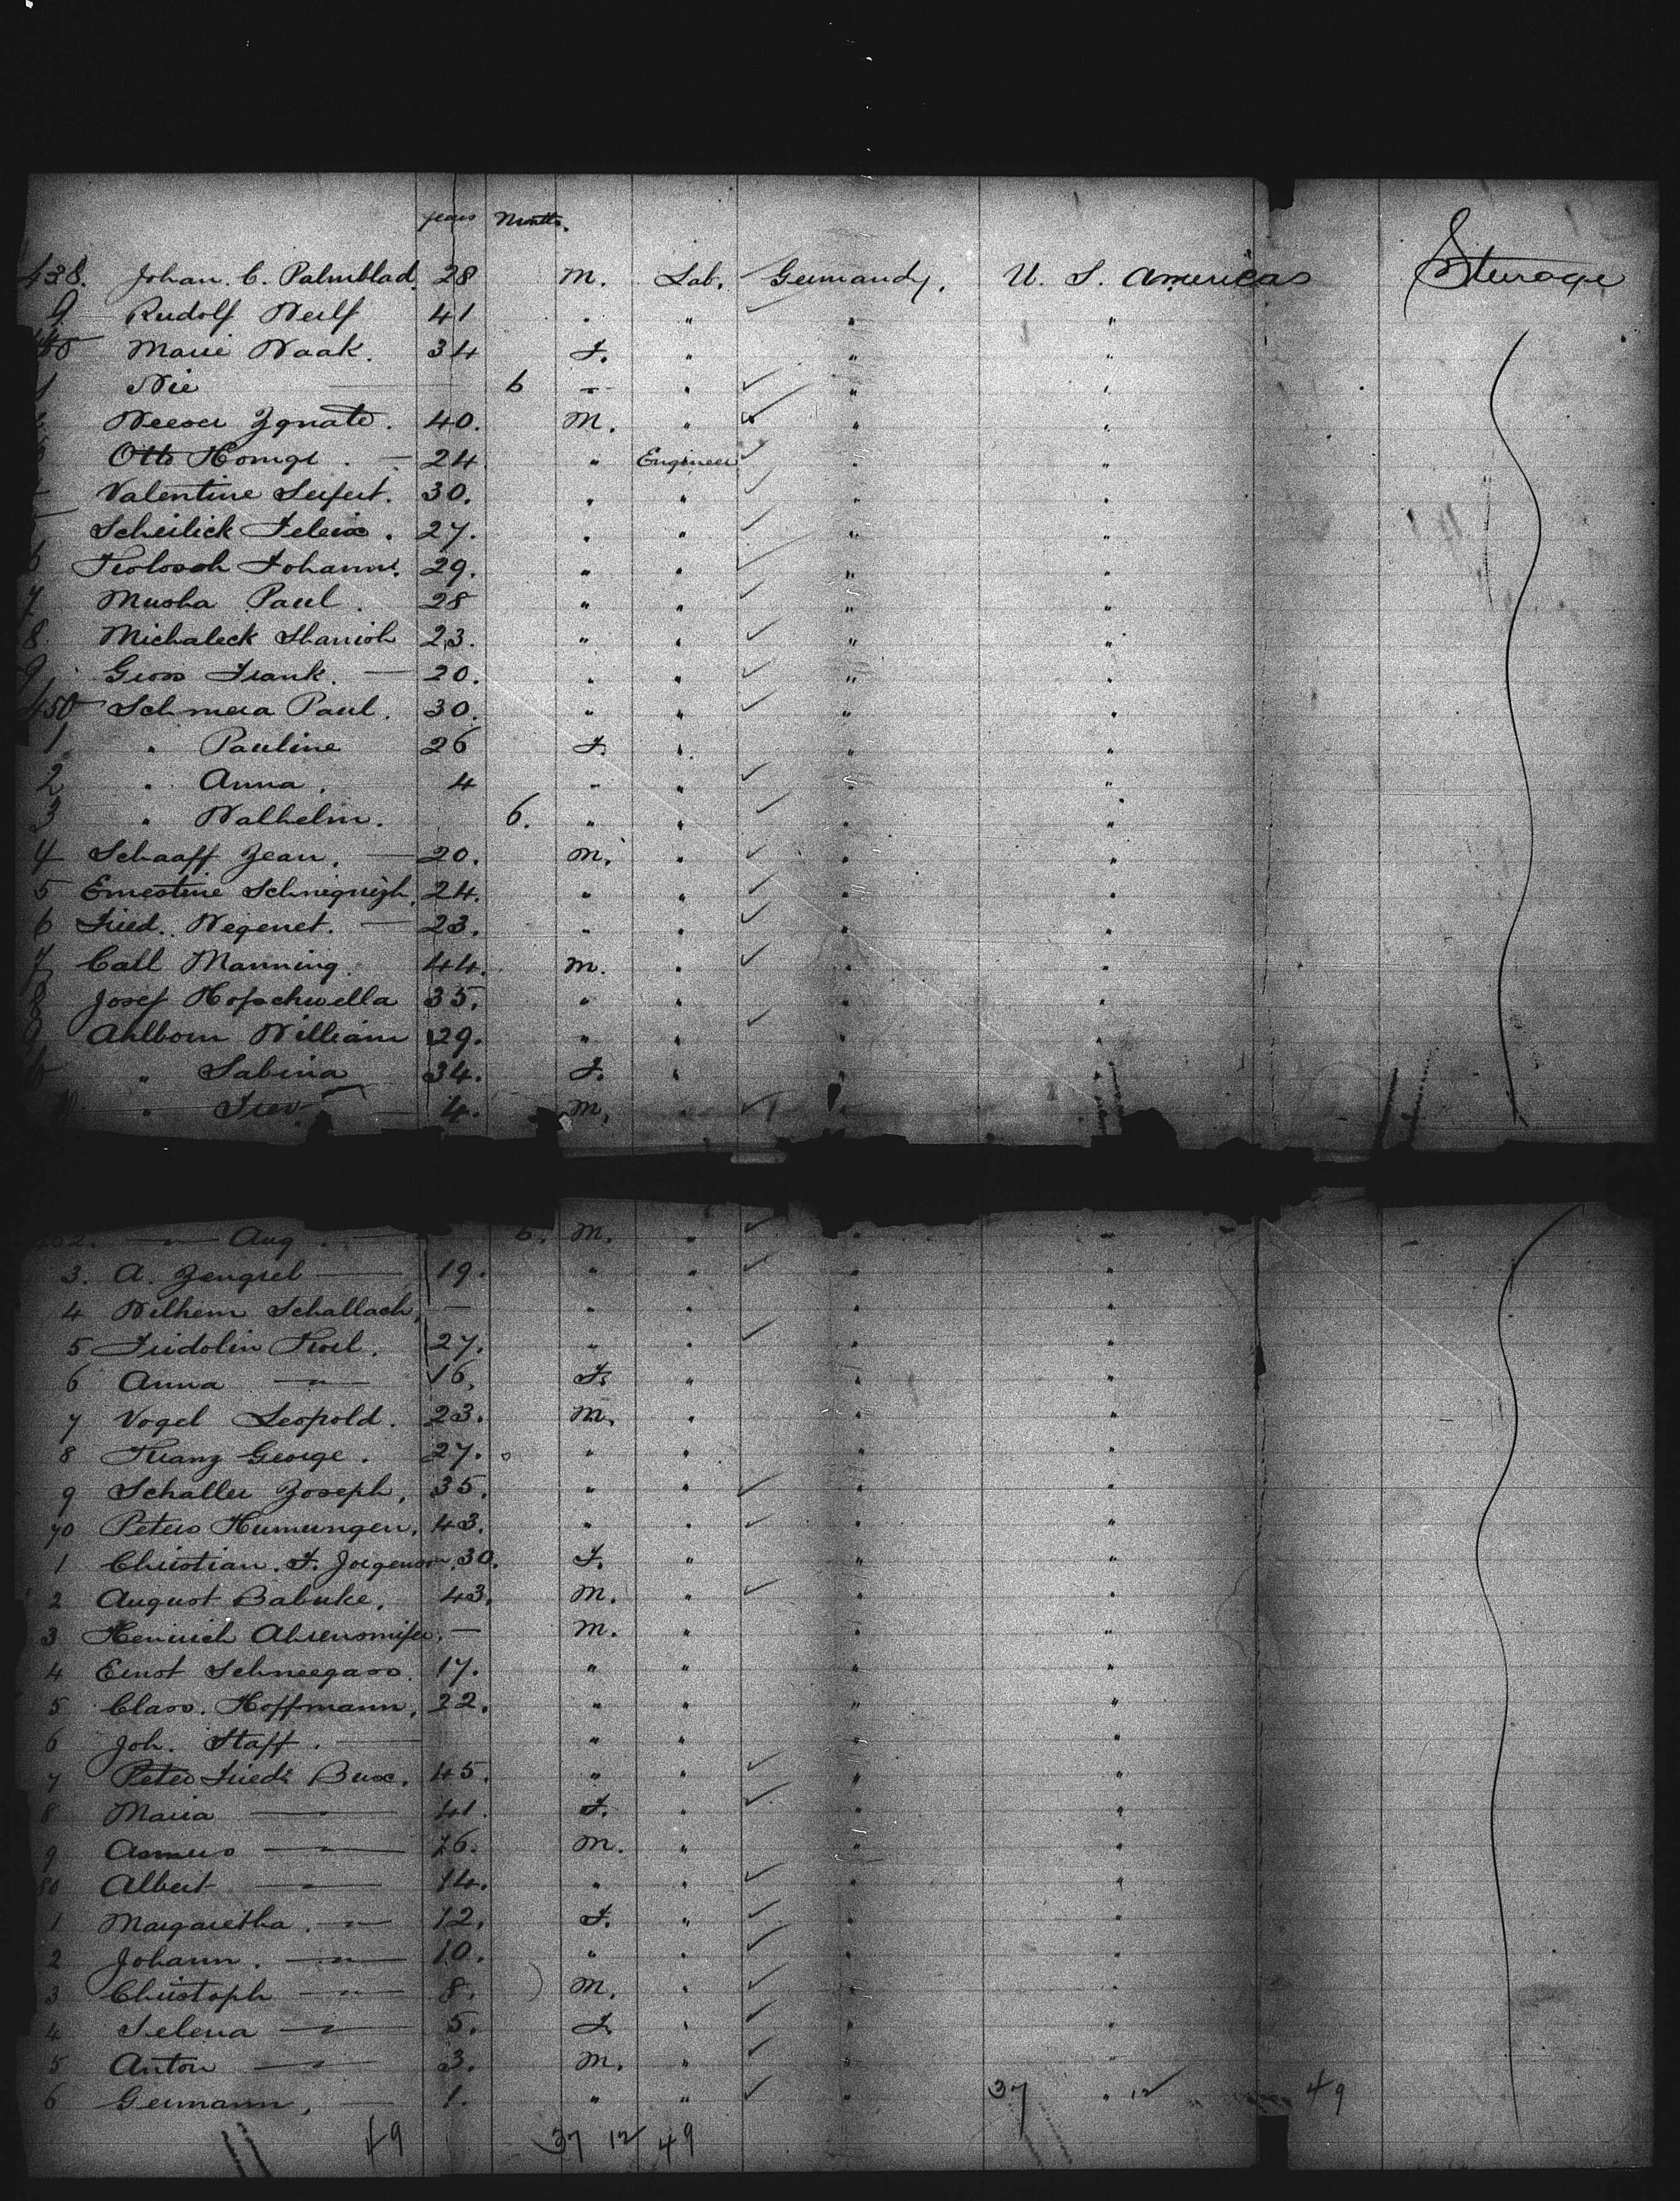 years Months.
438. Johan. C. Palmblad. 28 M. Lab. Germandy. U. S. Americas Sturage
9 Rudolf Wulf 41 . " " "
Marie Waak. 34 F. " " "
1 Nie — 6 " " " "
Weeser Zgnate. 40. M. " " "
Otto Homge. — 24 " Engineer " "
Valentine Seifert. 30. " " " "
Scheilick Feleix. 27. " " " "
6 Johann. 29. " " " "
7 Musha Paul. 28 " " " "
8. Michaleck 23. " " " "
9 Gross Frank. — 20. " " " "
450 Schmera Paul. 30. " " " "
1 " Pauline 26 F. " " "
2 " Anna. 4 " " " "
3 " Walhelm. 6. " " " "
4 Schaaff Zean. — 20. M. " " "
5 Ernestine 24. " " " "
6 Fried. Wegenet. — 23. " " " "
7 Carl Manning. 44. M. " " "
8 Josef Hofschwella 35. " " " "
9 Ahlborn William 29. " " " "
" Sabina 34. F. " " "
" 4. M. " " "
— " Aug. — 6. M. " " "
3. A. Zengrel — 19. " " " "
4 Wilhem Schallach, — " " " "
5 Fridolin 27. " " " "
6 Anna — " — 16. F. " " "
7 Vogel Leopold. 23. M. " " "
8 Franz George. 27. " " " "
9 Schaller Zoseph, 35. " " " "
70 Peters Humungen. 43. " " " "
1 Christian. F. Jorgenson. 30. F. " " "
2 August Babuke. 43. M. " " "
3 Heinrich — M. " " "
4 Ernst Schneegass. 17. " " " "
5 Class. Hoffmann. 22. " " " "
6 Joh. Staff. — " " " "
7 Peter Friedr Bux. 45. " " " "
8 Maria — " — 41. F. " " "
9 Asmus — " — M. " " "
80 Albert — " — 14. " " " "
1 Margaretha. — " — 12. F. " " "
2 Johann. — " — 10. " " " "
3 Christoph — " — 8. M. " " "
4 Selena — " — 5. F. " " "
5 Anton — " — 3. M. " " "
6 Germann, — 1. " " " 37 " 12 49
49 37 12 49